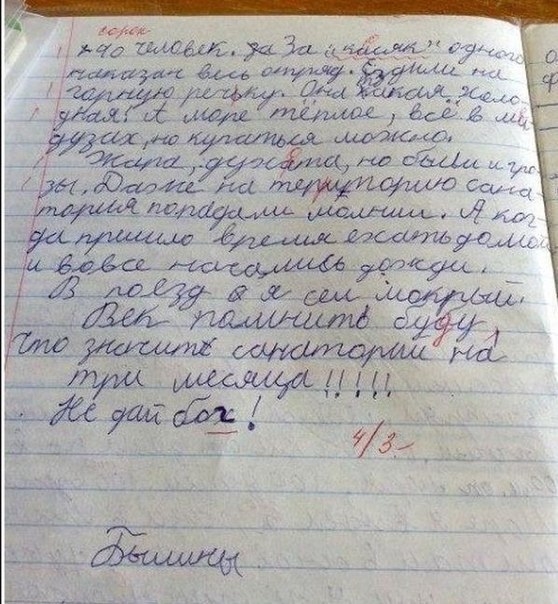 сорок
40 человек. За За "касяк" одного
наказан весь отряд. Ездили на
горную речьку. Она какая холо
дная! А море тёплое, всё в ме
дузах, но купаться можно.
Жара, духата, но были и гро
зы. Даже на территорию сана
тория попадали молнии. А ког-
да пришло время ехать домой
и вовсе начались дожди.
В поезд я сел мокрый.
Век помнить буду,
что значить санаторий на
три месяца!!!!!
Не дай бох!
4/3-
Былины